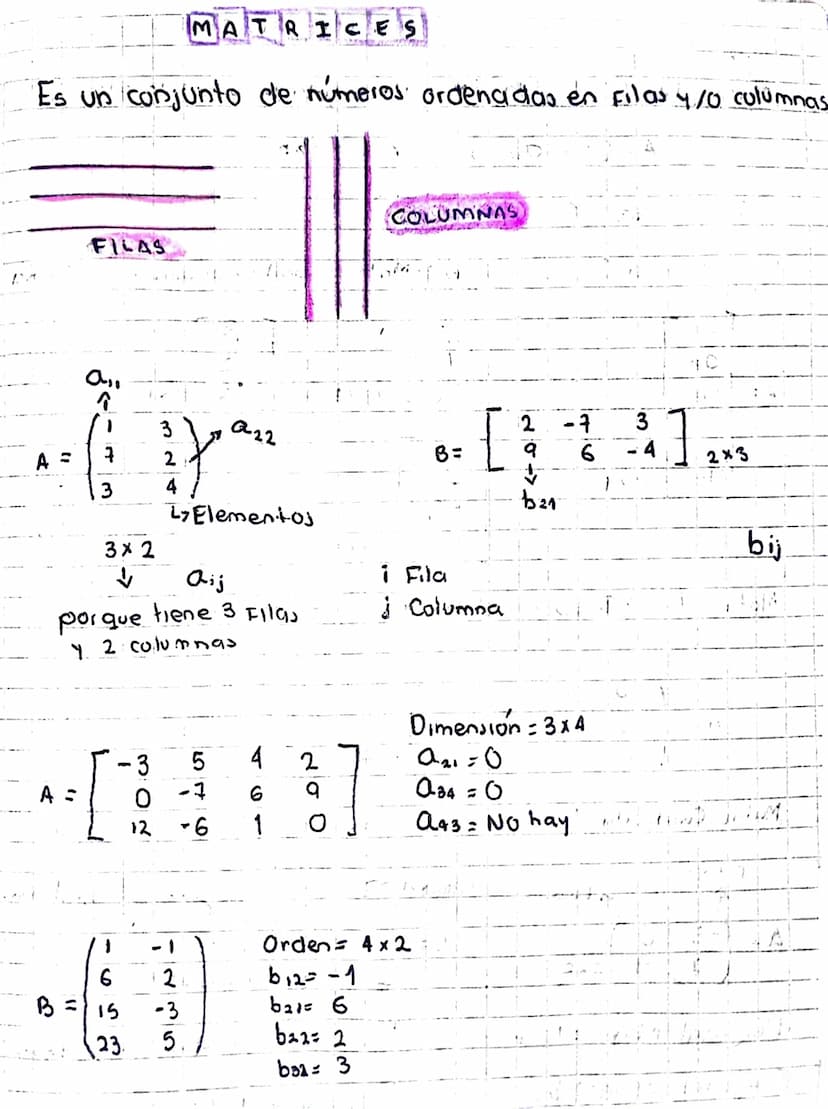 MATRICES
Es un conjunto de números ordenadas en Filas y/o columnas
FILAS
COLUMNAS
a11
A = ( 1 3
7 2
3 4 )
a22
Elementos
3 x 2
aij
porque tiene 3 Filas
y 2 columnas
B = [ 2 -7 3
9 6 -4 ] 2x3
b21
bij
i Fila
j Columna
A = [ -3 5 4 2
0 -7 6 9
12 -6 1 0 ]
Dimensión = 3x4
a21 = 0
a34 = 0
a43 = No hay
B = ( 1 -1
6 2
15 -3
23 5 )
Orden = 4x2
b12 = -1
b21 = 6
b22 = 2
b32 = 3